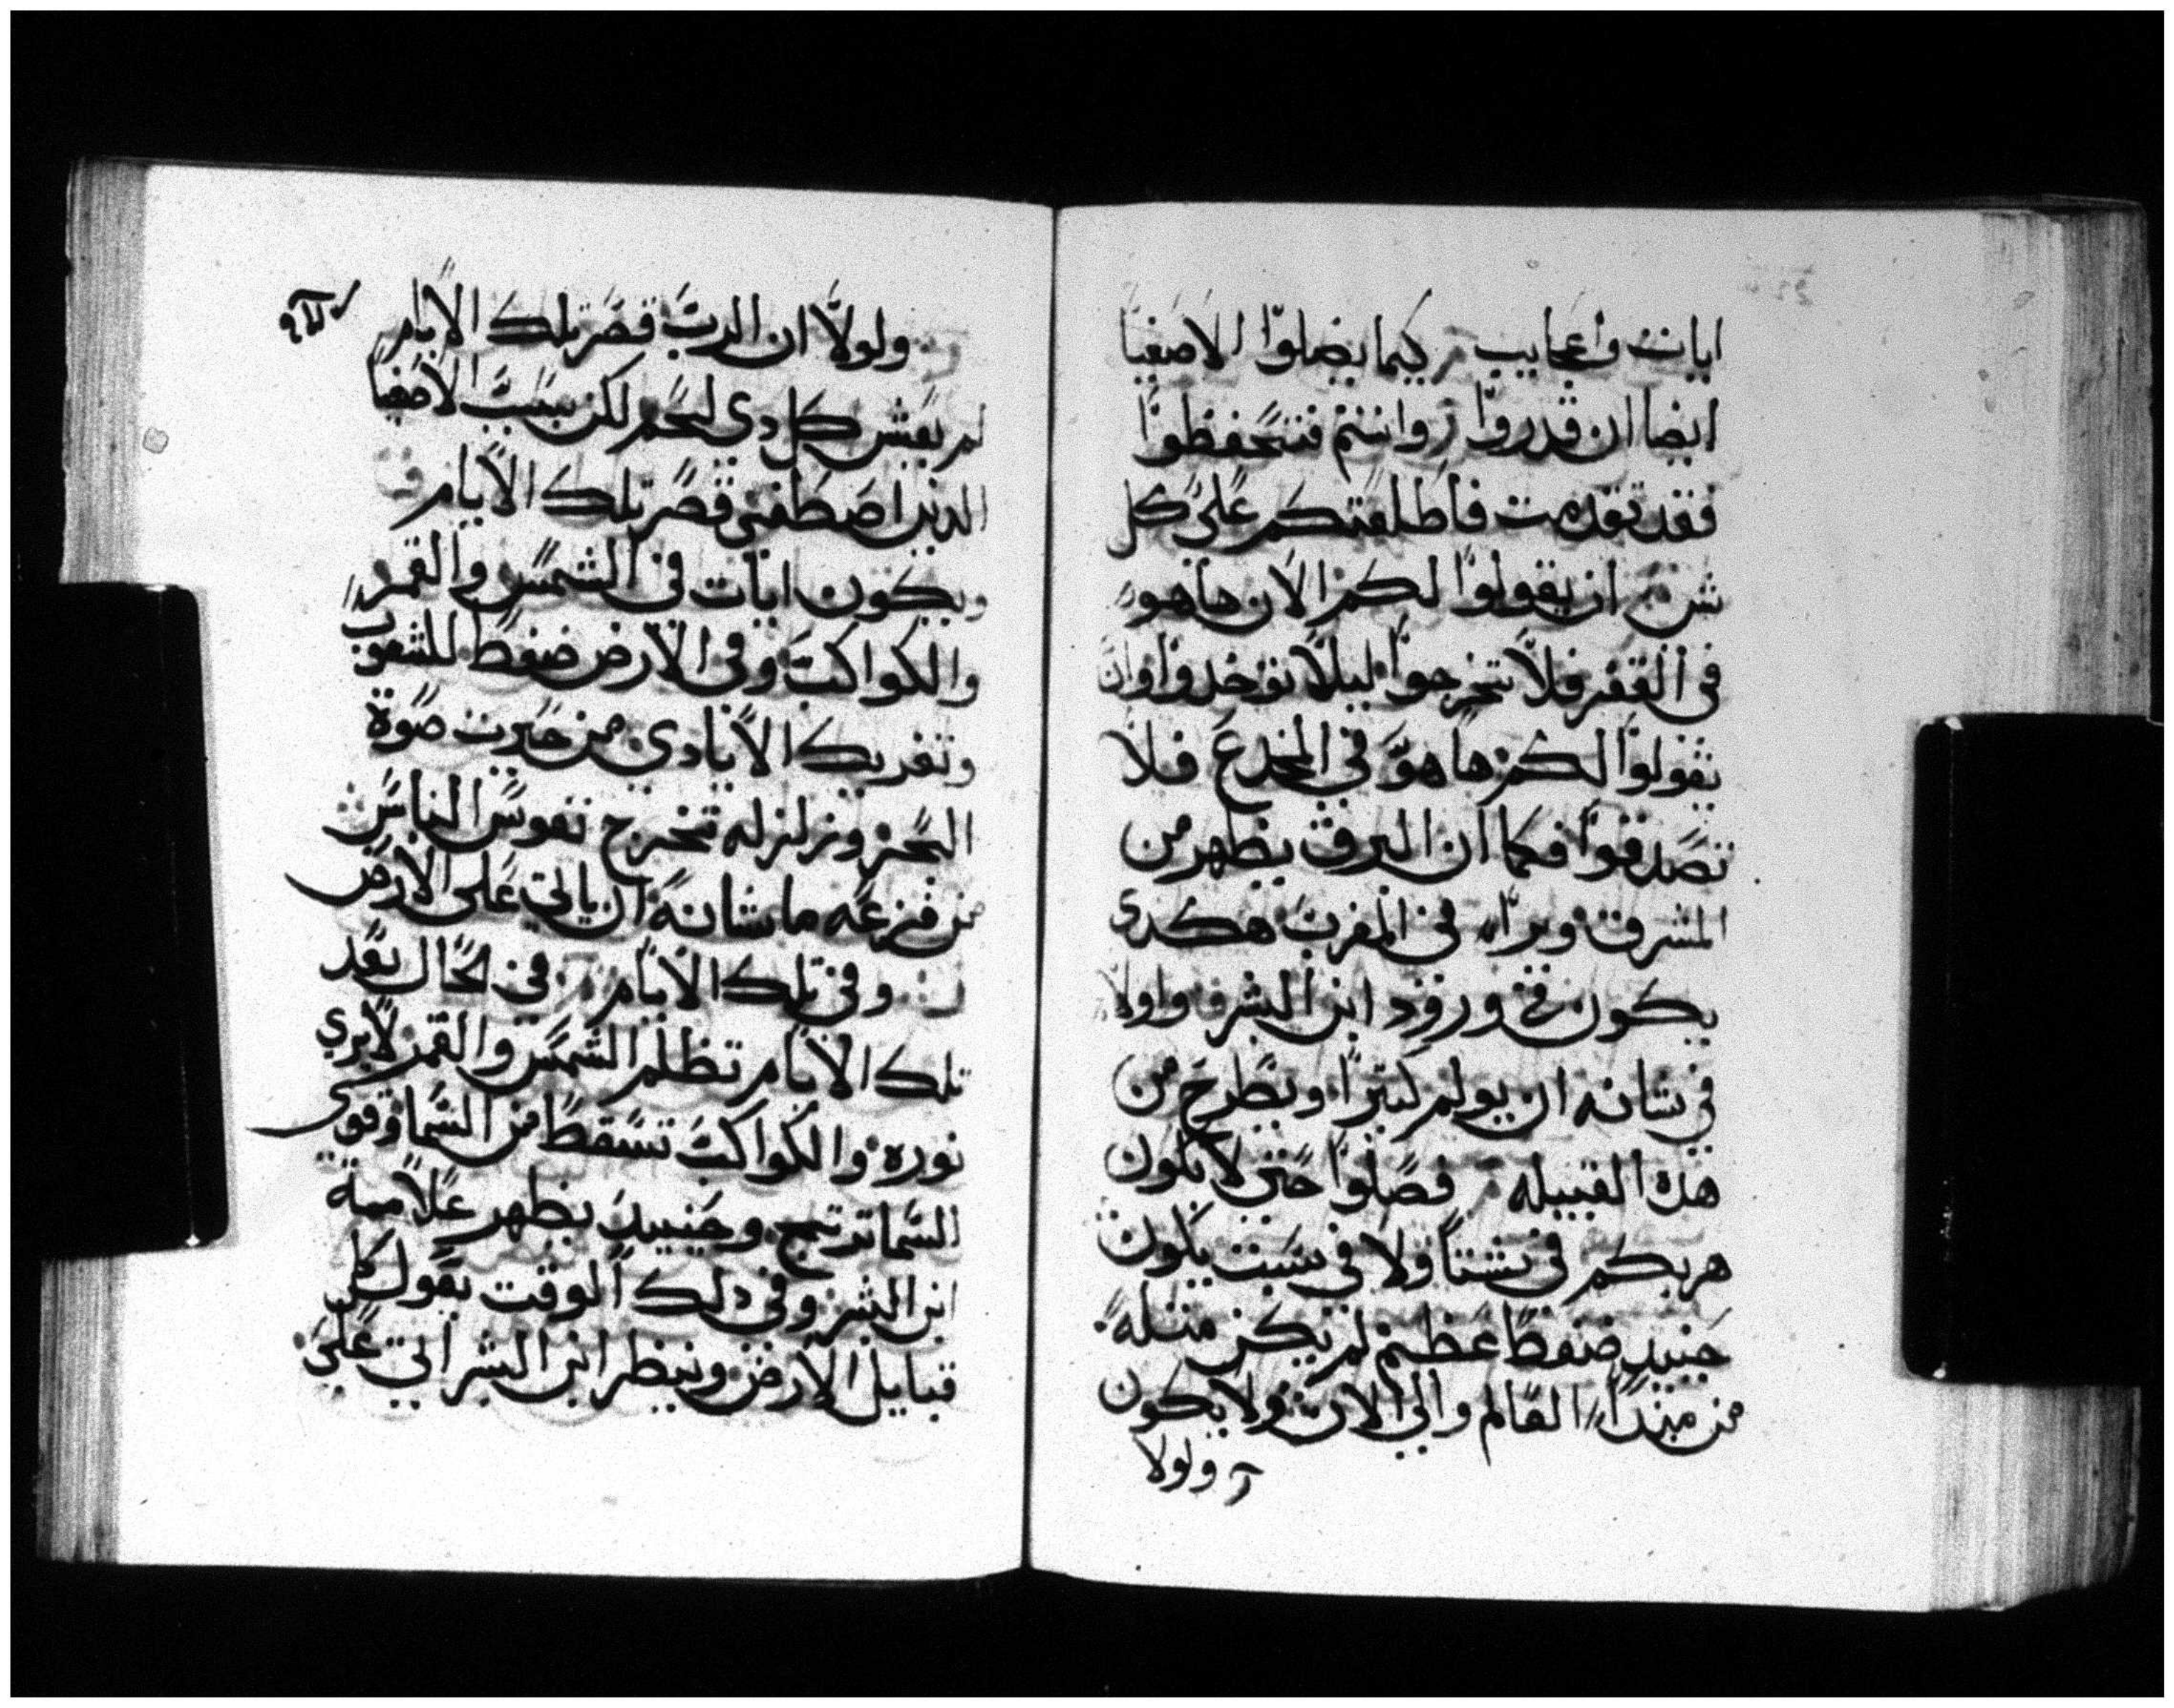 ايات واعجايب كيما يضلوا الاصفيا
ايضا ان قدروا وانتم فتحفظوا
فقد تقدمت فاطلعتكم على كل
شي ان يقولوا لكم الان هاهو
في القفر فلا تخرجوا ليلا توخدوا وان
يقولوا لكم هاهو في المخدع فلا
تصدقوا فكما ان البرق يظهر من
المشرق ويراء في المغرب هكدى
يكون ورود ابن البشر واولا
في شانه ان يولم كتيرا ويطرح من
هده القبيله فصلوا حتى لا يكون
هربكم في شتا ولا في سبت يكون
حنيد ضغط عظيم لم يكن متله
من مبتداء العالم والي الان ولا يكون
ولولا
ولولا ان الرب قصر تلك الايام
لم يعيش كل دي لحم لكن بسبب الاصفيا
الدين اصطفى قصر تلك الايام
ويكون ايات في الشمس والقمر
والكواكب وفي الارض ضغط للشعوب
وتفريك الايادي من حيرت صوة
البحر وزلزله تخرج نفوس الناس
من فزعه ما شانه ان ياتي على الارض
وفي تلك الايام في الحال بعد
تلك الايام تظلم الشمس والقمر لا يري
نوره والكواكب تسقط من السما وقوى
السما ترتج وحينيد يظهر علامة
ابن البشر وفي دلك الوقت يقول كل
قبايل الارض وينظر ابن البشر اتي على